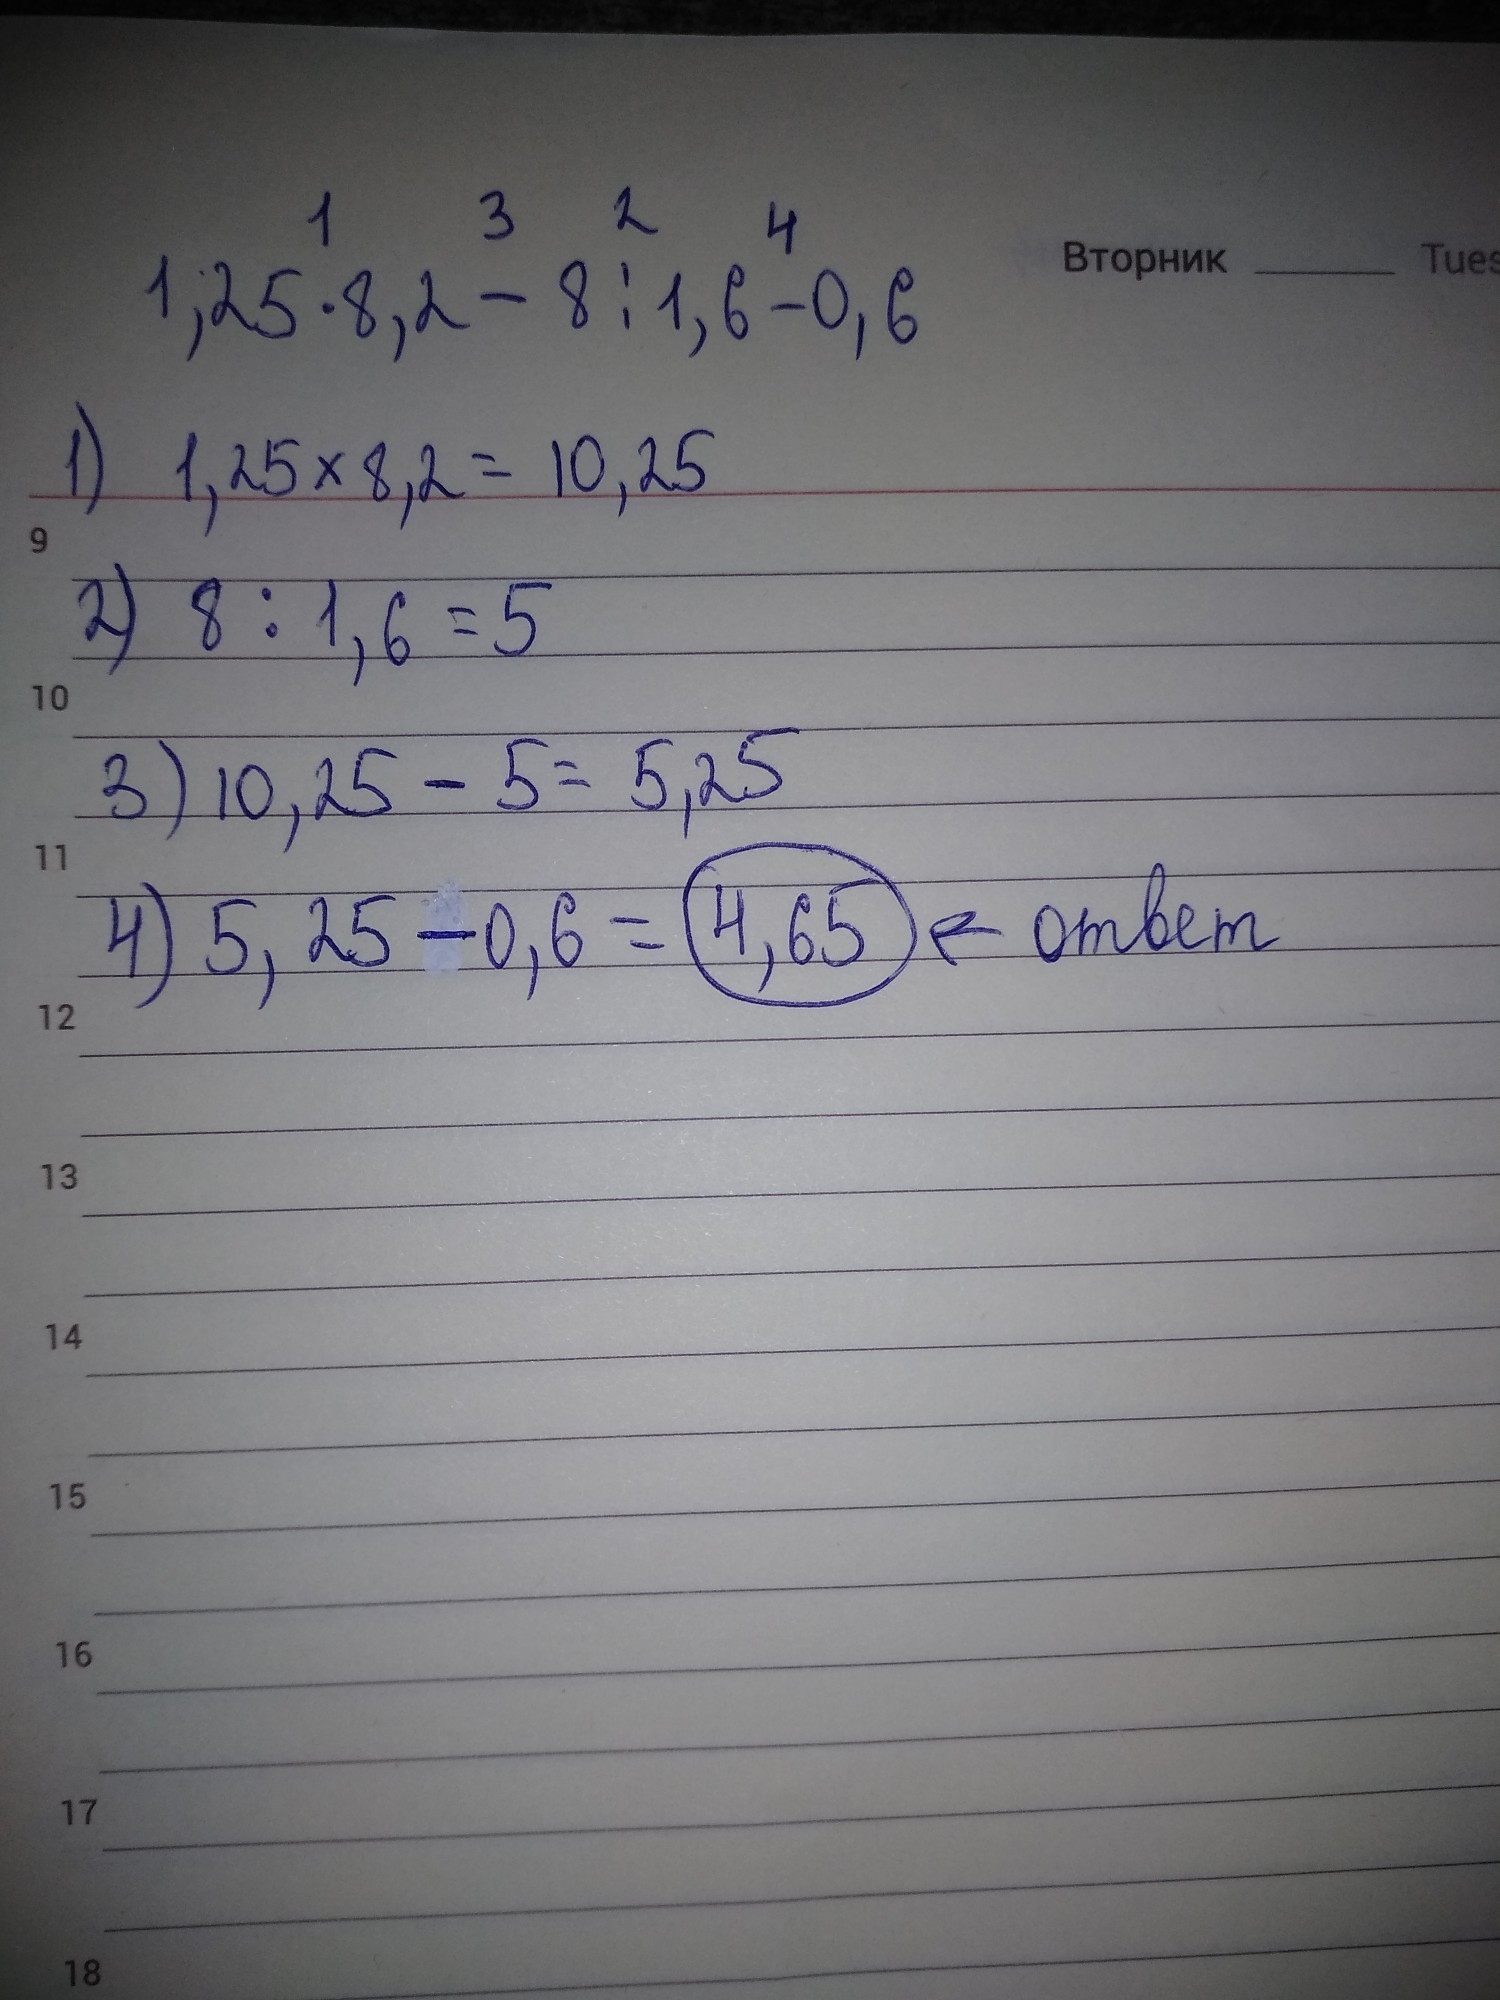 1 3 2 4
1,25·8,2 - 8:1,6-0,6
Вторник ______ Tues
1) 1,25×8,2 = 10,25
9
2) 8 : 1,6 = 5
10
3) 10,25 - 5 = 5,25
11
4) 5,25 - 0,6 = 4,65 ← ответ
12
13
14
15
16
17
18